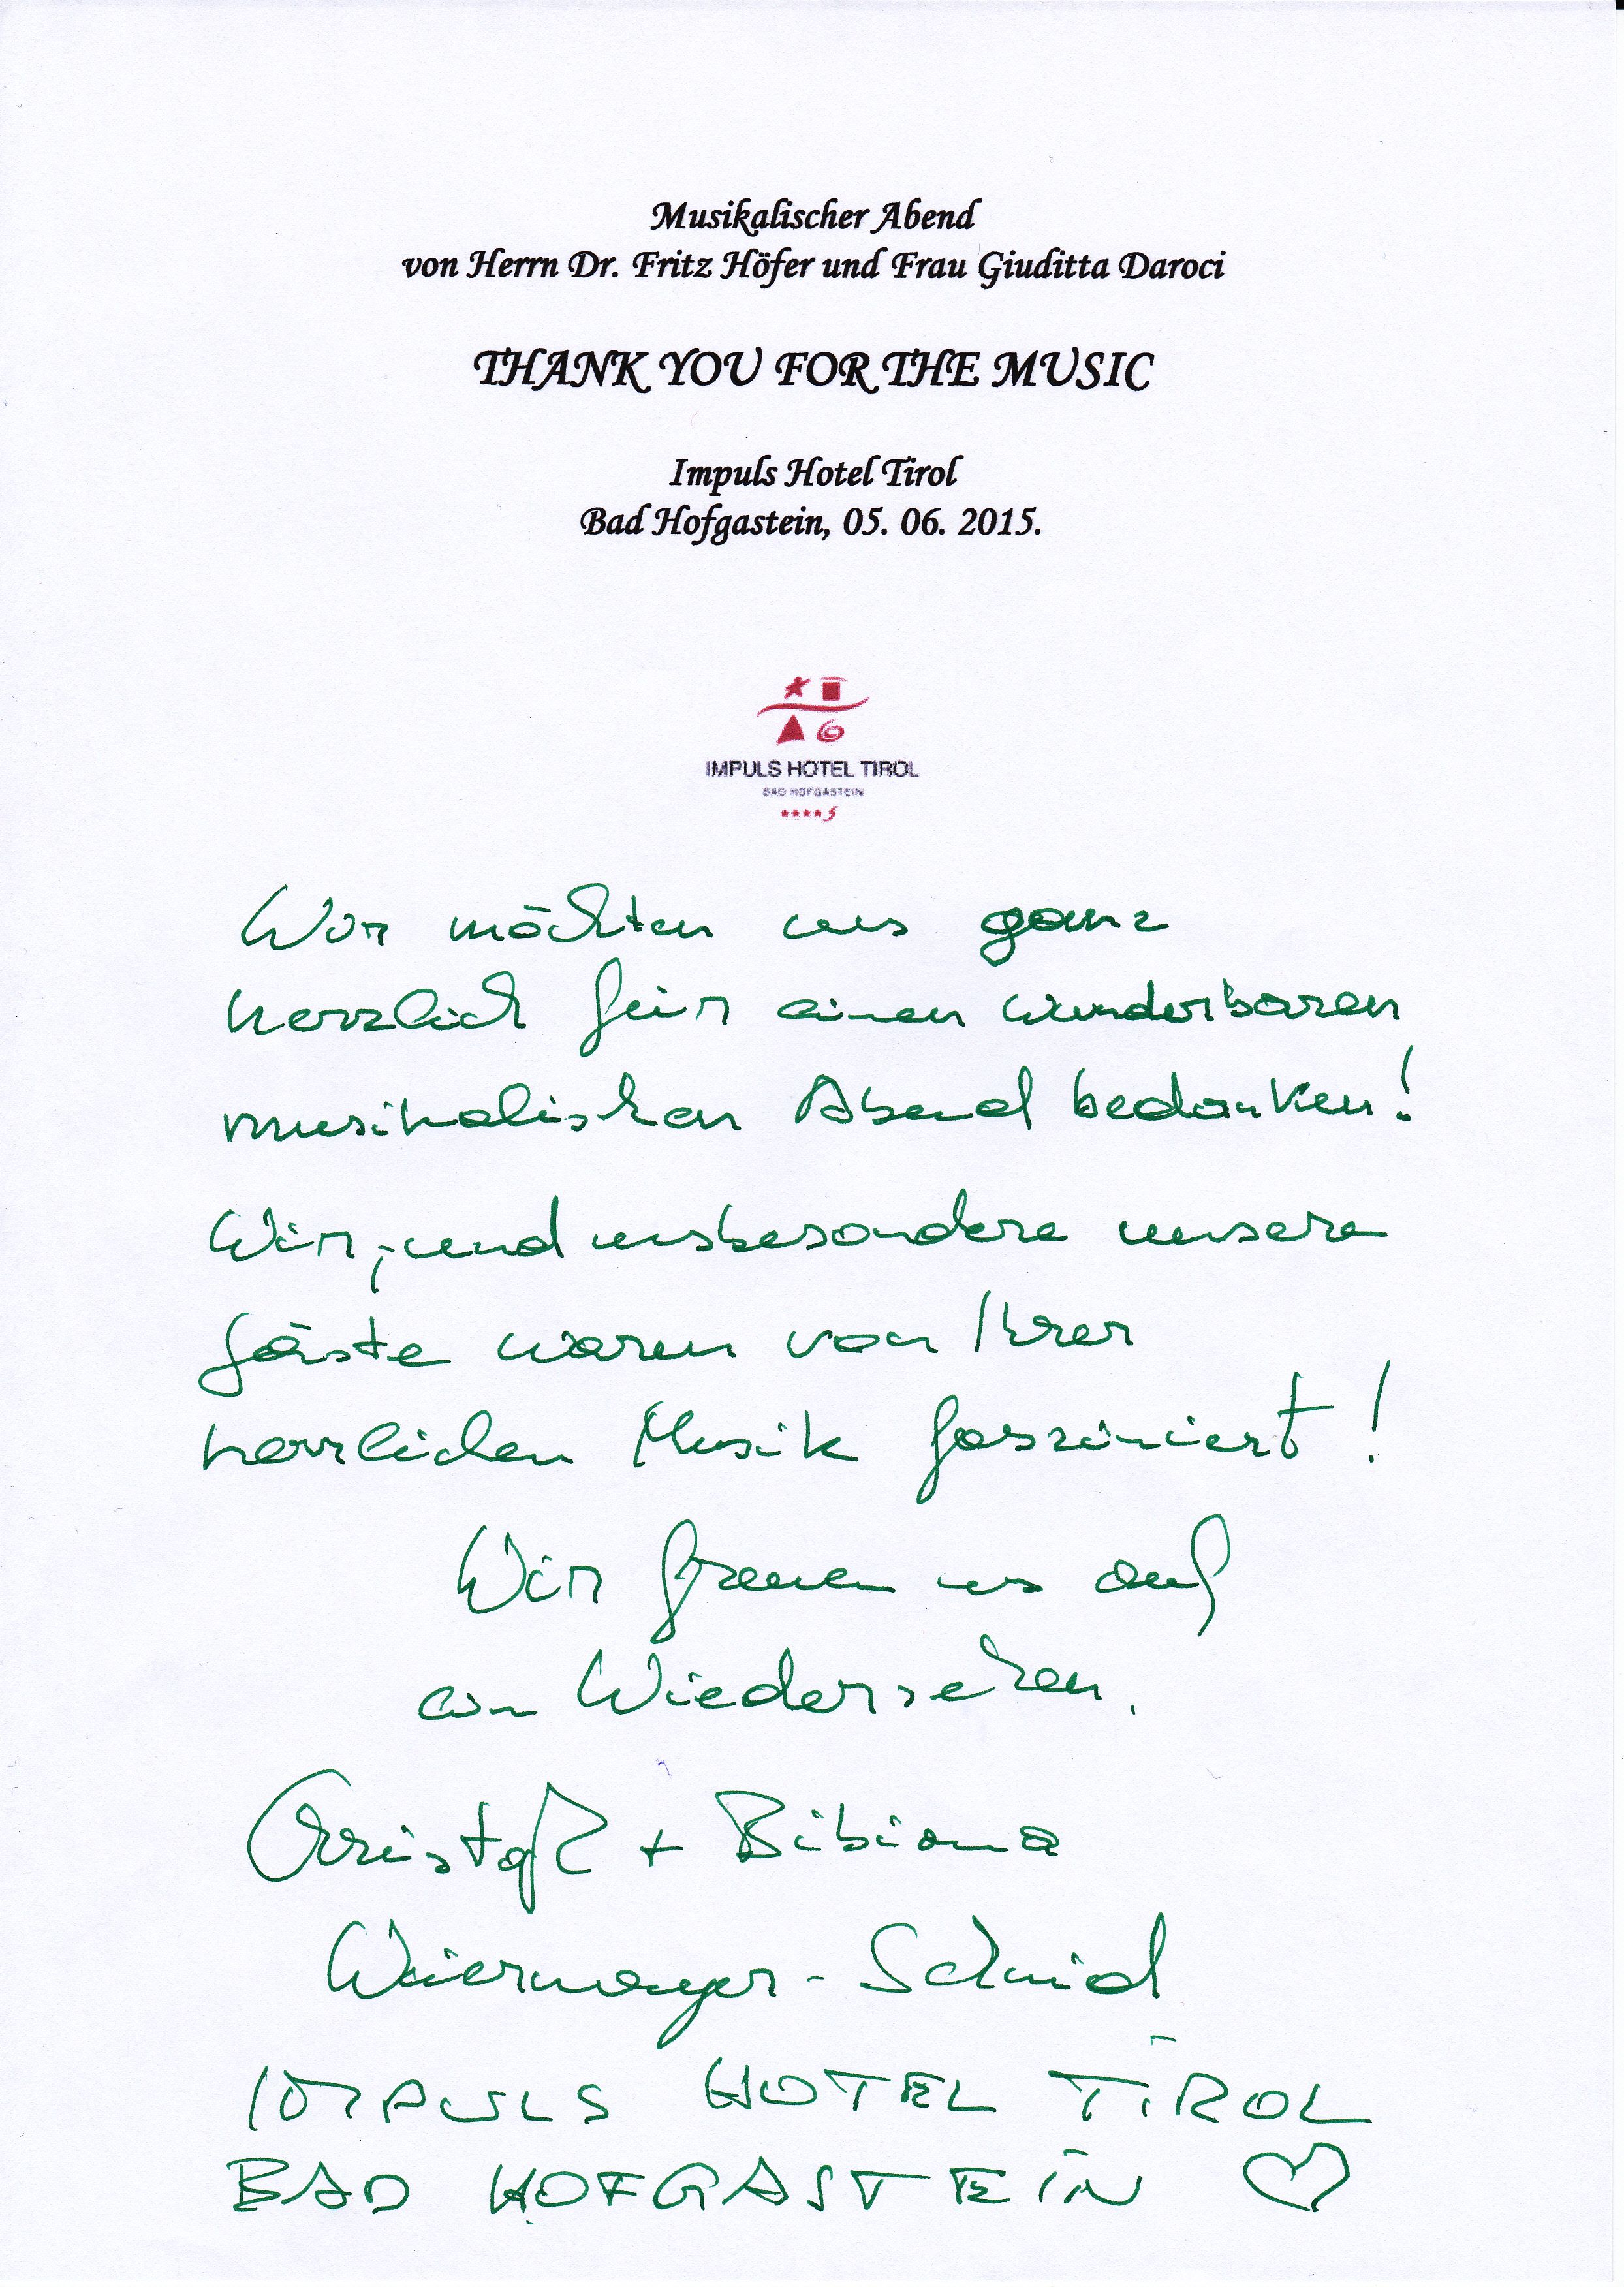 Musikalischer Abend
von Herrn Dr. Fritz Höfer und Frau Giuditta Daroci
THANK YOU FOR THE MUSIC
Impuls Hotel Tirol
Bad Hofgastein, 05. 06. 2015.
IMPULS HOTEL TIROL
BAD HOFGASTEIN
****S
Wir möchten uns ganz
herzlich für einen wunderbaren
musikalischen Abend bedanken!
Wir, und insbesondere unsere
Gäste waren von Ihrer
herrlichen Musik fasziniert!
Wir freuen uns auf
ein Wiedersehen.
Christoph + Bibiana
Weiermayer-Schmid
IMPULS HOTEL TIROL
BAD HOFGASTEIN ♡